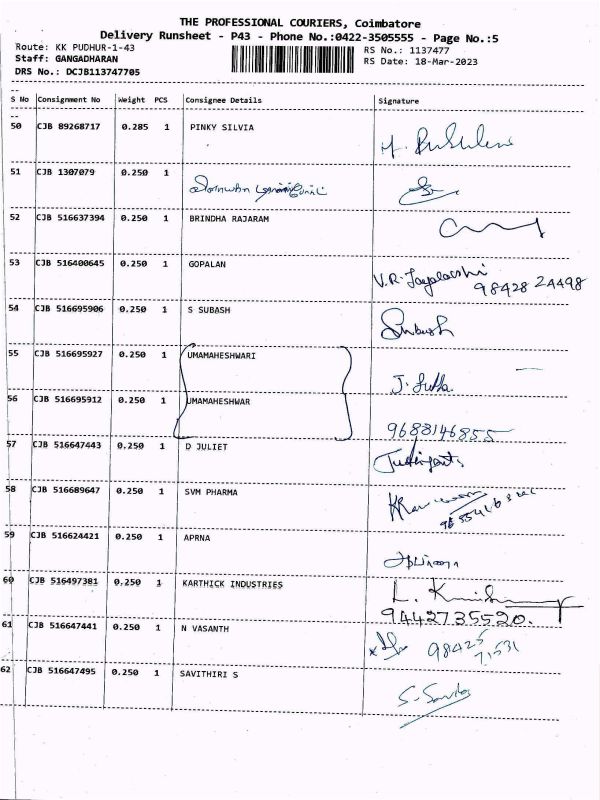 THE PROFESSIONAL COURIERS, Coimbatore
Delivery Runsheet - P43 - Phone No.:0422-3505555 - Page No.:5
Route: KK PUDHUR-1-43
RS No.: 1137477
Staff: GANGADHARAN
RS Date: 18-Mar-2023
DRS No.: DCJB113747705
S No Consignment No Weight PCS Consignee Details Signature
50 CJB 89268717 0.285 1 PINKY SILVIA
51 CJB 1307079 0.250 1
52 CJB 516637394 0.250 1 BRINDHA RAJARAM
53 CJB 516400645 0.250 1 GOPALAN V.R.
98428 24498
54 CJB 516695906 0.250 1 S SUBASH Subash
55 CJB 516695927 0.250 1 UMAMAHESHWARI
56 CJB 516695912 0.250 1 UMAMAHESHWAR
9688146855
57 CJB 516647443 0.250 1 D JULIET
58 CJB 516689647 0.250 1 SVM PHARMA
59 CJB 516624421 0.250 1 APRNA
60 CJB 516497381 0.250 1 KARTHICK INDUSTRIES L.
9442735520.
61 CJB 516647441 0.250 1 N VASANTH 98425
71531
62 CJB 516647495 0.250 1 SAVITHIRI S